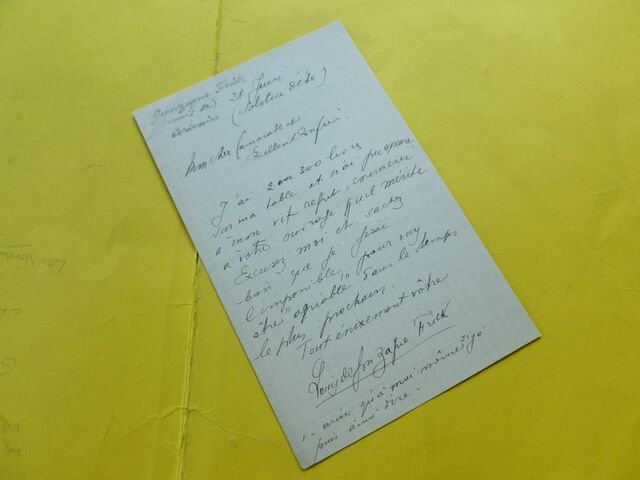 Gonzague Frick
écrivain
21 Juin
(Solstice d'été)
Mon cher Camarade et
Excellent Confrère
J'ai 2 ou 300 livres
sur ma table et n'ai pu encore
à mon vif regret, consacrer
à votre ouvrage qu'il mérite
Excusez moi et sachez
bien que je ferai
l'impossible pour vous
être "agréable" dans le temps
le plus prochain.
Tout enixement vôtre
Louis de Gonzague Frick
1 - ainsi qu'à moi même si je
puis ainsi dire -